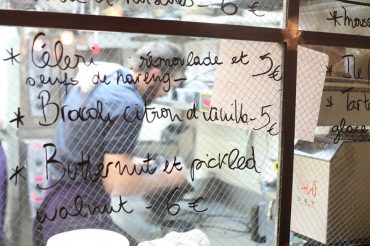 6€
* Céleri rémoulade et
oeufs de hareng - 5€
* Brocoli citron et vanille - 5€
* Butternut et pickled
walnut - 6€
* Ile
* Tarte